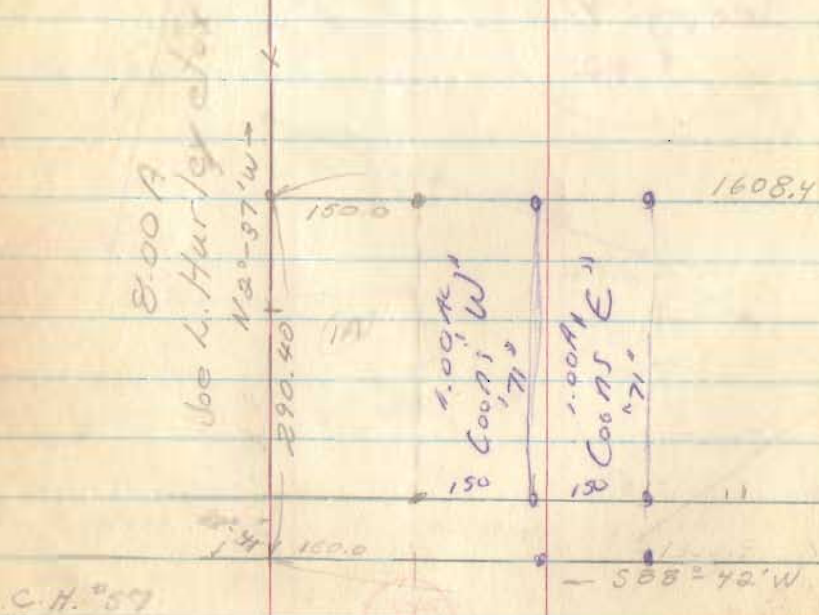 8.00 A
Joe L. Hurley
N 2°-37' W →
290.40
150.0
1608.4
1.00 Ac
Coons W"
"71"
150
1.00 Ac
Coons E"
"71"
150
"
— S 88° 42' W
C. H. "57